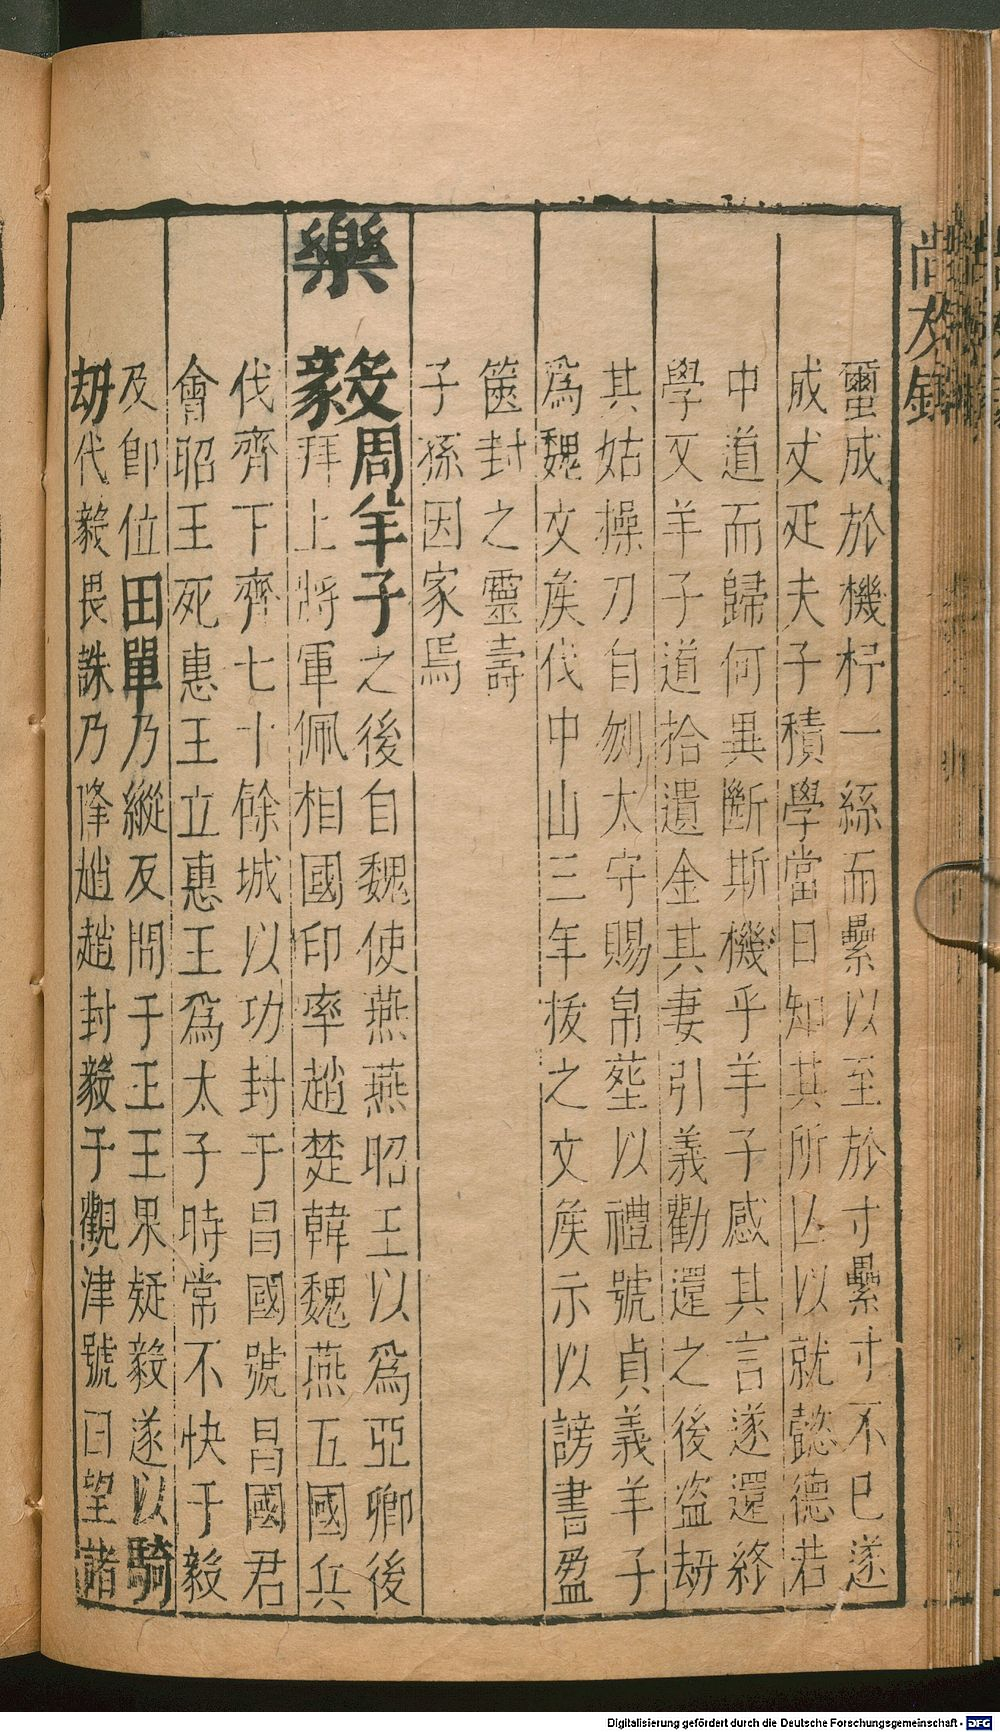 尚友錄
蠒成於機杼一絲而纍以至於寸纍寸不已遂
成丈疋夫子積學當日知其所亡以就懿德若
中道而歸何異斷斯機乎羊子感其言遂還終
學又羊子道拾遺金其妻引義勸還之後盜劫
其姑操刀自刎太守賜帛塟以禮號貞義羊子
爲魏文矦伐中山三年拔之文矦示以謗書盈
篋封之靈壽
子孫因家焉
樂毅周羊子之後自魏使燕燕昭王以爲亞卿後
拜上將軍佩相國印率趙楚韓魏燕五國兵
伐齊下齊七十餘城以功封于昌國號昌國君
會昭王死惠王立惠王爲太子時常不快于毅
及卽位田單乃縱反間于王王果疑毅遂以騎
刼代毅畏誅乃降趙趙封毅于觀津號曰望諸
Digitalisierung gefördert durch die Deutsche Forschungsgemeinschaft - DFG